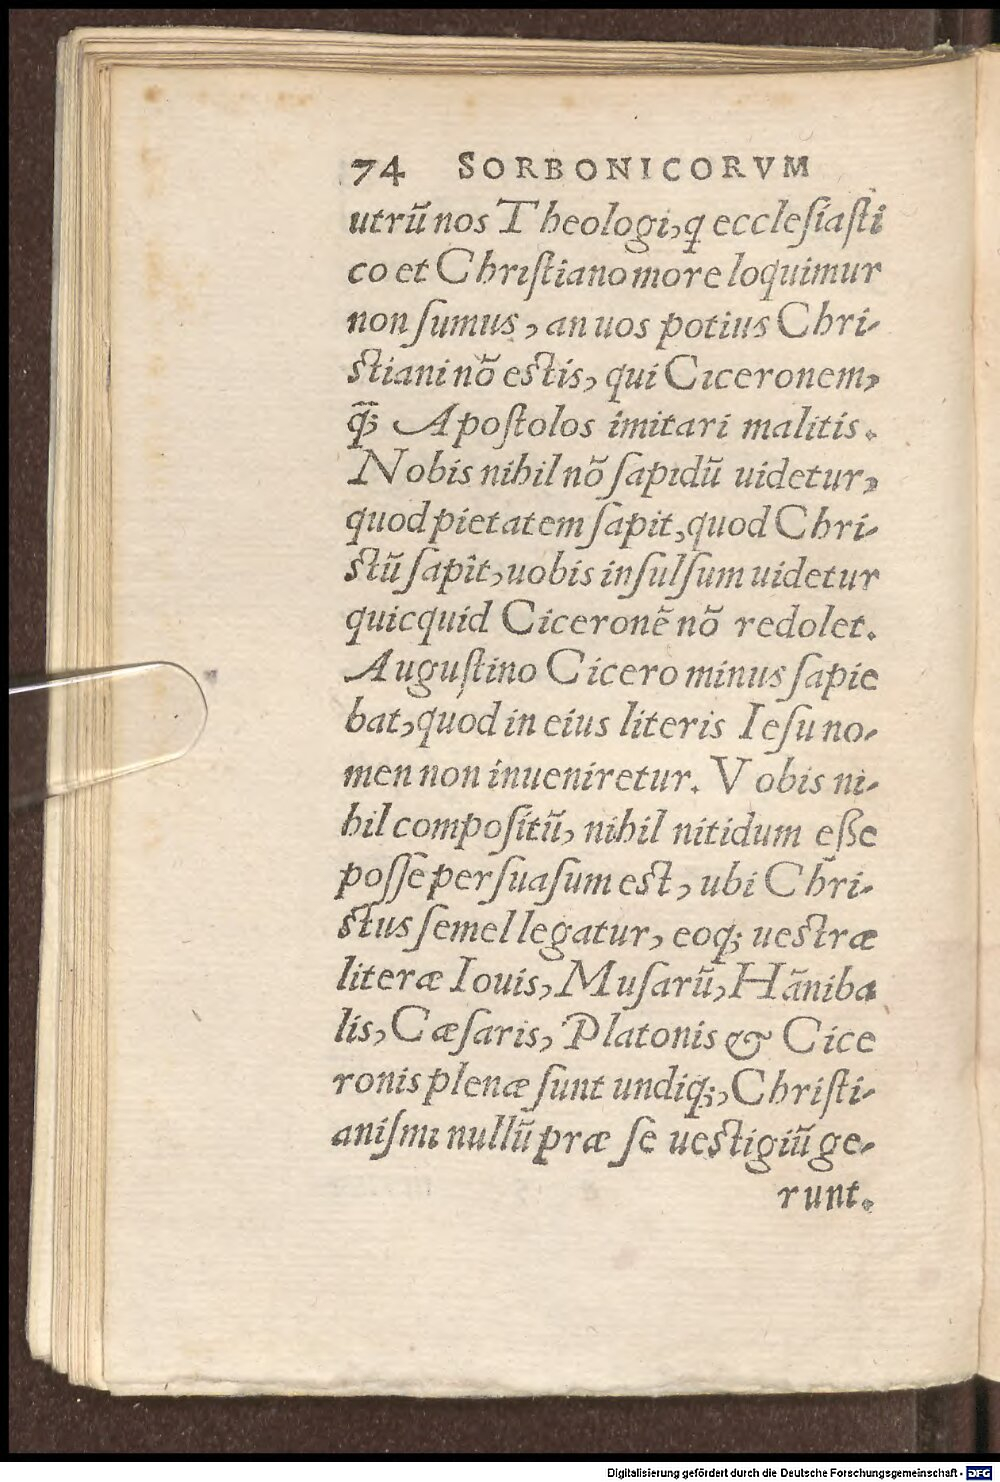 74 SORBONICORVM
utrũ nos Theologi, q ecclesiasti
co et Christiano more loquimur
non sumus, an uos potius Chri-
stiani nõ estis, qui Ciceronem,
q̃ꝫ Apostolos imitari malitis.
Nobis nihil nõ sapidũ uidetur,
quod pietatem sapit, quod Chri-
stũ sapit, uobis insulsum uidetur
quicquid Ciceronẽ nõ redolet.
Augustino Cicero minus sapie
bat, quod in eius literis Iesu no-
men non inueniretur. Vobis ni-
hil compositũ, nihil nitidum eße
posse persuasum est, ubi Chri-
stus semel legatur, eoqꝫ uestræ
literæ Iouis, Musarũ, Hãniba
lis, Cæsaris, Platonis & Cice
ronis plenæ sunt undiqꝫ, Christi-
anismi nullũ præ se uestigiũ ge-
runt.
Digitalisierung gefördert durch die Deutsche Forschungsgemeinschaft - DFG